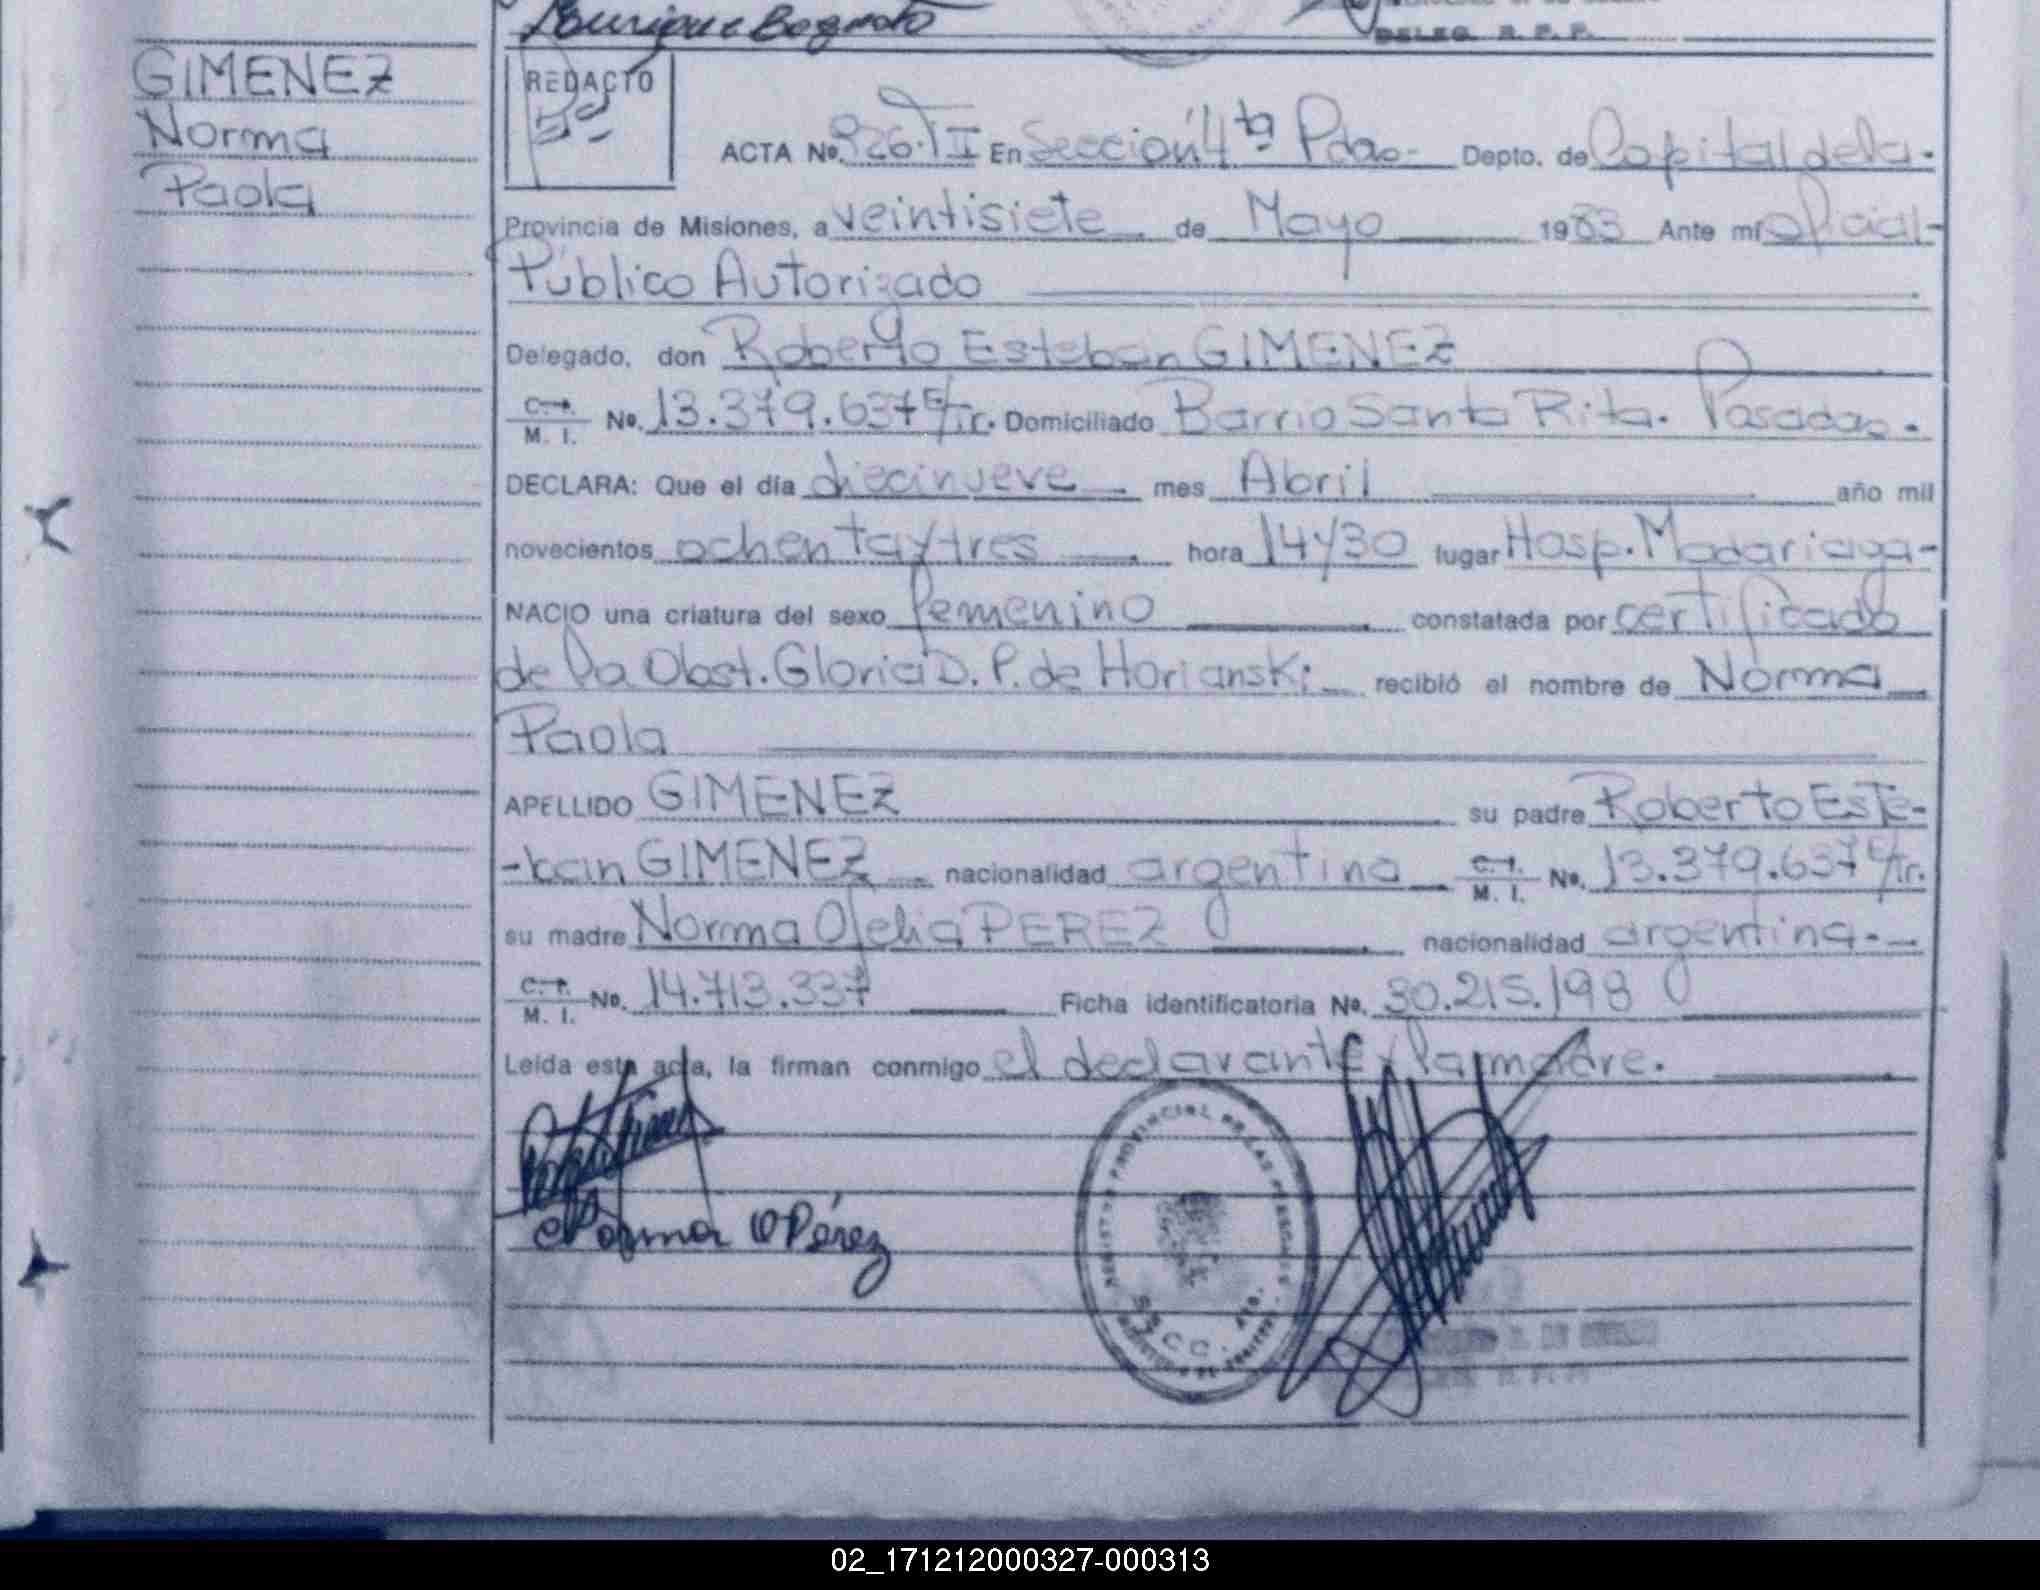 Enrique Bogado
DELEG. R. P. P.
GIMENEZ
Norma
Paola
REDACTO
ACTA No. 926.TI En Sección 4ta Pdas.- Depto. de Capital de la.
Provincia de Misiones, a veintisiete de Mayo 1983 Ante mí oficial-
Público Autorizado
Delegado, don Roberto Esteban GIMENEZ
C. I. / M. I. No. 13.379.637 E/Tr. Domiciliado Barrio Santa Rita. Posadas.
DECLARA: Que el día diecinueve mes Abril año mil
novecientos ochentaytres hora 14y30 lugar Hosp. Madariaga-
NACIO una criatura del sexo femenino constatada por certificado
de la Obst. Gloria D. P. de Horianski recibió el nombre de Norma
Paola
APELLIDO GIMENEZ su padre Roberto Este-
-ban GIMENEZ nacionalidad argentina C. I. / M. I. No. 13.379.637 E/Tr.
su madre Norma Ofelia PEREZ nacionalidad argentina.-
C. I. / M. I. No. 14.713.337 Ficha identificatoria No. 30.215.198
Leída esta acta, la firman conmigo el declarante y la madre.
Norma O Pérez
REGISTRO PROVINCIAL DE LAS PERSONAS
02_171212000327-000313